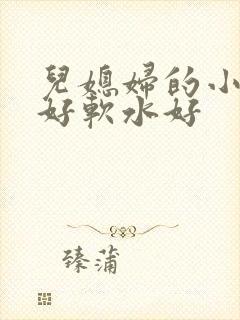 兒媳婦的小
好軟水好
臻蒲